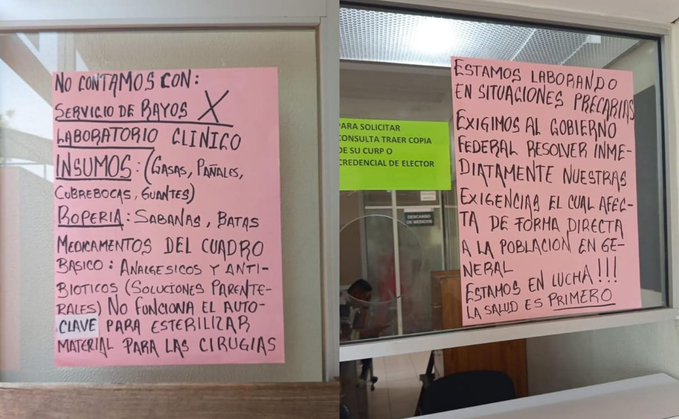 NO CONTAMOS CON:
SERVICIO DE RAYOS X
LABORATORIO CLINICO
INSUMOS: (GASAS, PAÑALES,
CUBREBOCAS, GUANTES)
ROPERIA: SABANAS, BATAS
MEDICAMENTOS DEL CUADRO
BASICO: ANALGESICOS Y ANTI-
BIOTICOS (SOLUCIONES PARENTE-
RALES) NO FUNCIONA EL AUTO-
CLAVE PARA ESTERILIZAR
MATERIAL PARA LAS CIRUGIAS
PARA SOLICITAR
CONSULTA TRAER COPIA
DE SU CURP O
CREDENCIAL DE ELECTOR
DESCANSO
DE MEDICOS
ESTAMOS LABORANDO
EN SITUACIONES PRECARIAS
EXIGIMOS AL GOBIERNO
FEDERAL RESOLVER INME-
DIATAMENTE NUESTRAS
EXIGENCIAS EL CUAL AFEC-
TA DE FORMA DIRECTA
A LA POBLACION EN GE-
NERAL
ESTAMOS EN LUCHA!!!
LA SALUD ES PRIMERO